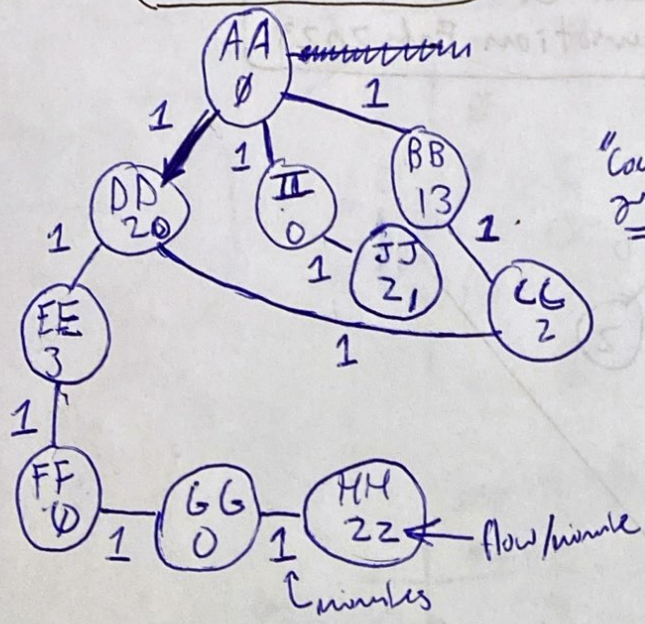 AA
0
1
1
1
DD
20
II
0
BB
13
1
1
1
JJ
21
CC
2
EE
3
1
1
FF
0
GG
0
HH
22
flow/minute
1
1
minutes